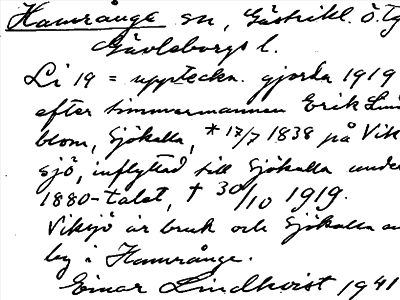 Hamrånge sn, Gästrikl. ö. ty
Gävleborgs l.
Li 19 = uppteckn. gjorda 1919
efter timmermannen Erik Lind
blom, Sjökalla, * 17/7 1838 på Vik
sjö, inflyttad till Sjökalla under
1880-talet, † 30/10 1919.
Viksjö är bruk och Sjökalla
by i Hamrånge.
Einar Lindkvist 1941